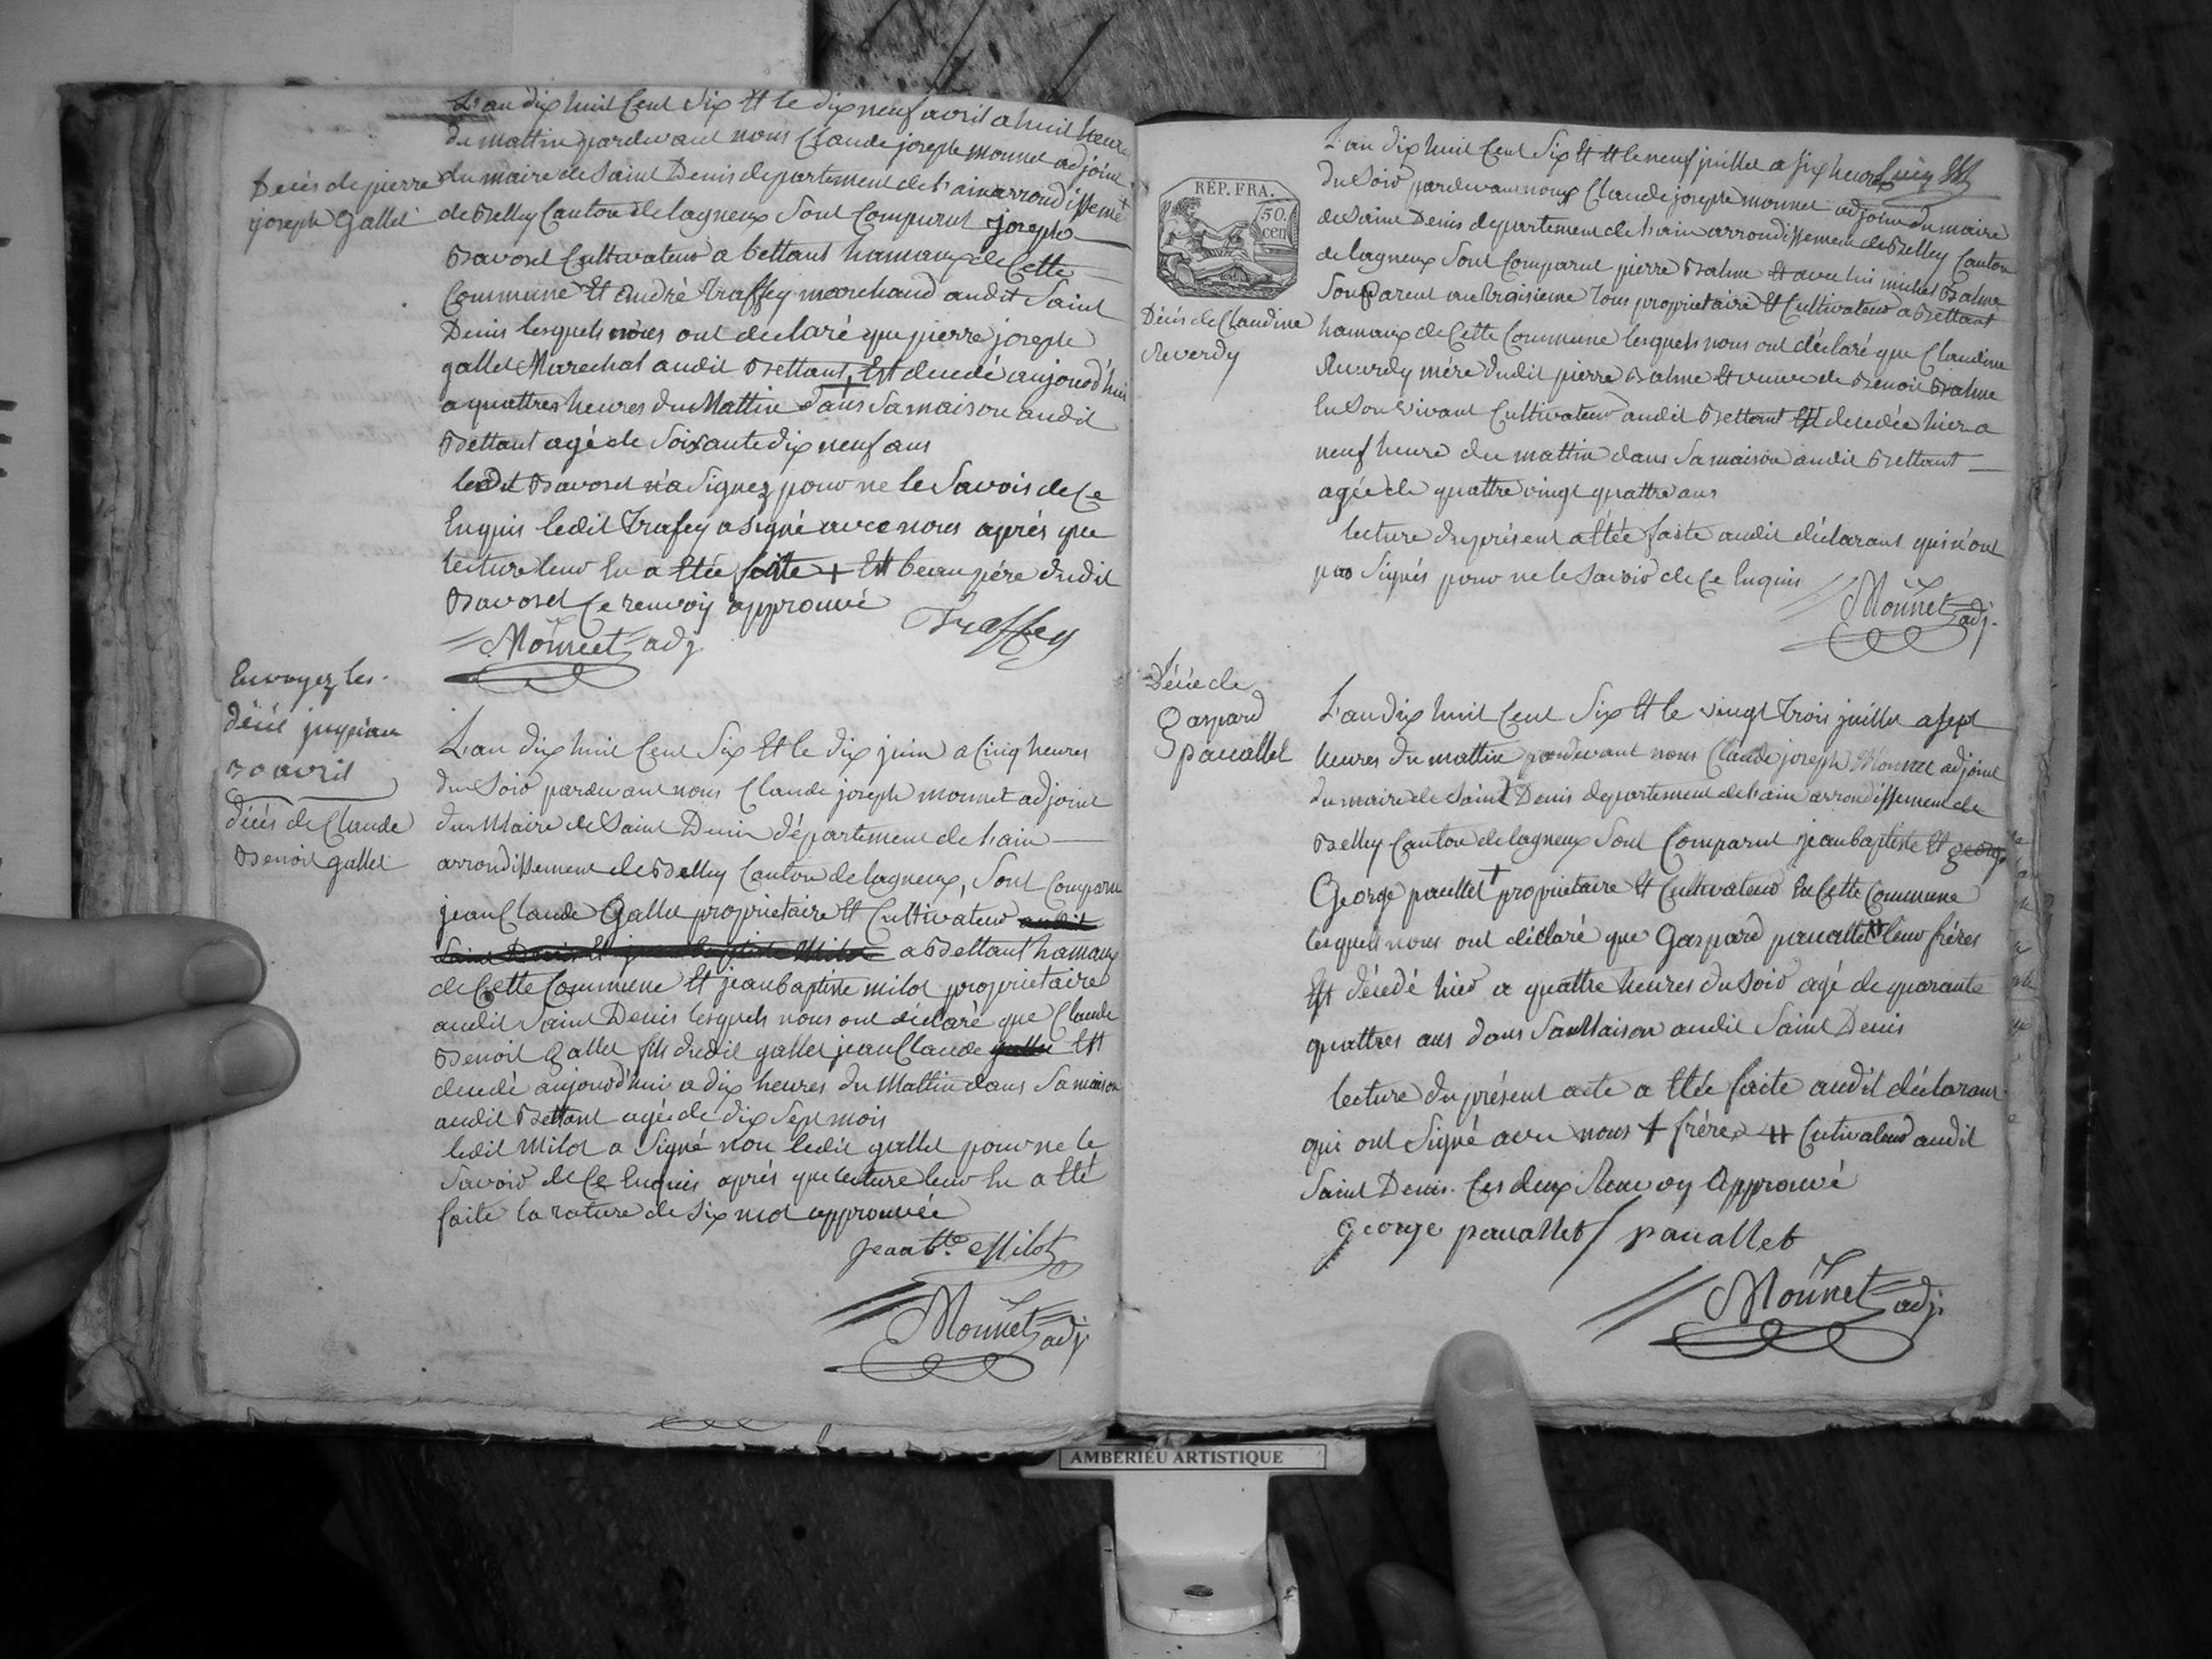 L'an dix huit Cent Six Et le dix neuf avril a huit heures
du mattin pardevant nous Claude joseph monnet adjoint
du maire de Saint Denis departement de l'ain arrondissemet
de Belley Canton de lagneux Sont Comparut joseph
Bavozet Cultivateur a bettant hamaux de Cette
Commune Et André Traffey marchand audit Saint
Denis lesquels nous ont declaré que pierre joseph
gallet Marechal audit Bettant, + Est decedé aujourd'hui
a quattres heures du Mattin dans Sa maison audit
Bettant agé de Soixante dix neuf ans
ledit Bavozet n'a Signez pour ne le Savoir de Ce
Enquis ledit Trafey a signé avec nous aprés que
lecture leur En a Etée faite + Est beau pére dudit
Bavozet Ce renvoy approuvé
Traffey
Monnet adj.
Decés de pierre
joseph Gallet
Envoyez les
décé jusqu'au
30 avril
décés de Claude
Benoit gallet
L'an dix huit Cent Six Et le dix juin a Cinq heures
du Soir pardevant nous Claude joseph monnet adjoint
du Maire de Saint Denis département de l'ain
arrondissement de Belley Canton de lagneux, Sont Comparu
jean Claude Gallet proprietaire Et Cultivateur audit
Saint Denis Et jean baptiste Milot a Bettant hamaux
de Cette Commune Et jean baptiste milot proprietaire
audit Saint Denis lesquels nous ont déclaré que Claude
Benoit Gallet fils dudit gallet jean Claude gallet Est
decedé aujourd'hui a dix heures du Mattin dans Sa maison
audit Bettant agé de dix Sept mois
ledit Milot a Signé non ledit gallet pour ne le
Savoir de Ce Enquis aprés que lecture leur En a Eté
faite la rature de Six mot approuvée
Jean bte. Milot
Monnet adj.
REP. FRA.
50.
cen
Décés de Claudine
Reverdy
L'an dix huit Cent Six Et Et le neuf juillet a six heures
du Soir pardevant nous Claude joseph monnet adjoint du maire
de Saint Denis departement de l'ain arrondissement de Belley Canton
de lagneux Sont Comparut pierre Balme Et avec lui michel Balme
Son Parent au troisieme Tous proprietaire Et Cultivateur a Bettant
hamaux de Cette Commune lesquels nous ont déclaré que Claudine
Reverdy mére dudit pierre Balme Et veuve de Benoit Balme
En Son vivant Cultivateur audit Bettant Est decedée hier a
neuf heure du mattin dans Sa maison audit Bettant
agée de quattre vingt quattre ans
lecture du présent a Etée faite audit déclarant qui n'ont
pas Signés pour ne le Savoir de Ce Enquis
Monnet adj.
Décé de
Gaspard
pauallet
L'an dix huit Cent Six Et le vingt Trois juillet a Sept
heures du mattin pardevant nous Claude joseph Monnet adjoint
du maire de Saint Denis departement de l'ain arrondissement de
Belley Canton de lagneux Sont Comparut jean baptiste Et georg
George pauallet + proprietaire Et Cultivateur En Cette Commune
lesquels nous ont déclaré que Gaspard pauallet ++ leur fréres
Est décédé hier a quattre heures du Soir agé de quarante
quattres ans dans Sa Maison audit Saint Denis
lecture du présent acte a Etée faite audit déclarant
qui ont Signé avec nous + fréres ++ Cultivateur audit
Saint Denis. Ces deux Renvoy Approuvé
george pauallet / pauallet
Monnet adj.
AMBERIEU ARTISTIQUE